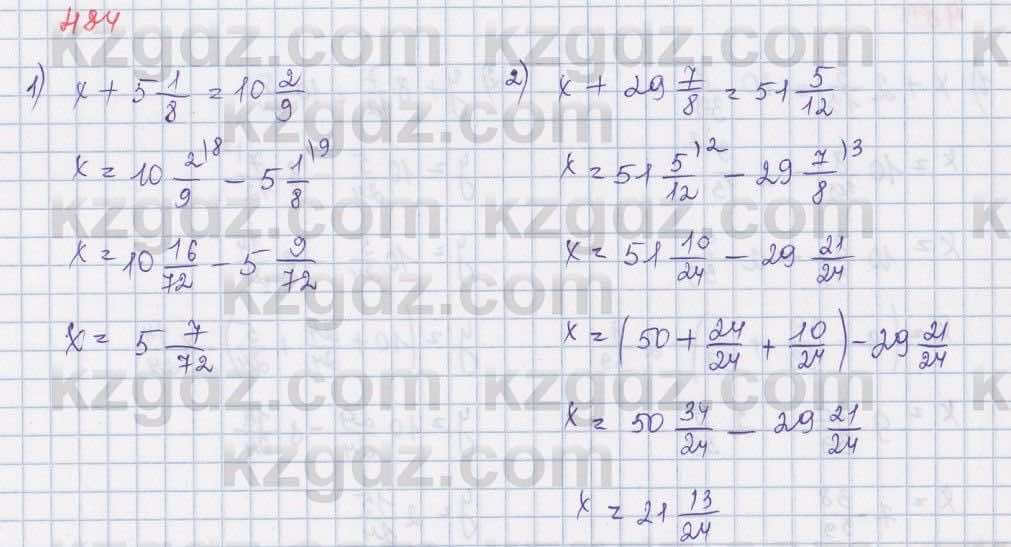 484
1) x + 5 1/8 = 10 2/9
x = 10 2/9 )8 − 5 1/8 )9
x = 10 16/72 − 5 9/72
x = 5 7/72
2) x + 29 7/8 = 51 5/12
x = 51 5/12 )2 − 29 7/8 )3
x = 51 10/24 − 29 21/24
x = (50 + 24/24 + 10/24) − 29 21/24
x = 50 34/24 − 29 21/24
x = 21 13/24
kzgdz.com
kzgdz.com
kzgdz.com
kzgdz.com
kzgdz.com
kzgdz.com
kzgdz.com
kzgdz.com
kzgdz.com